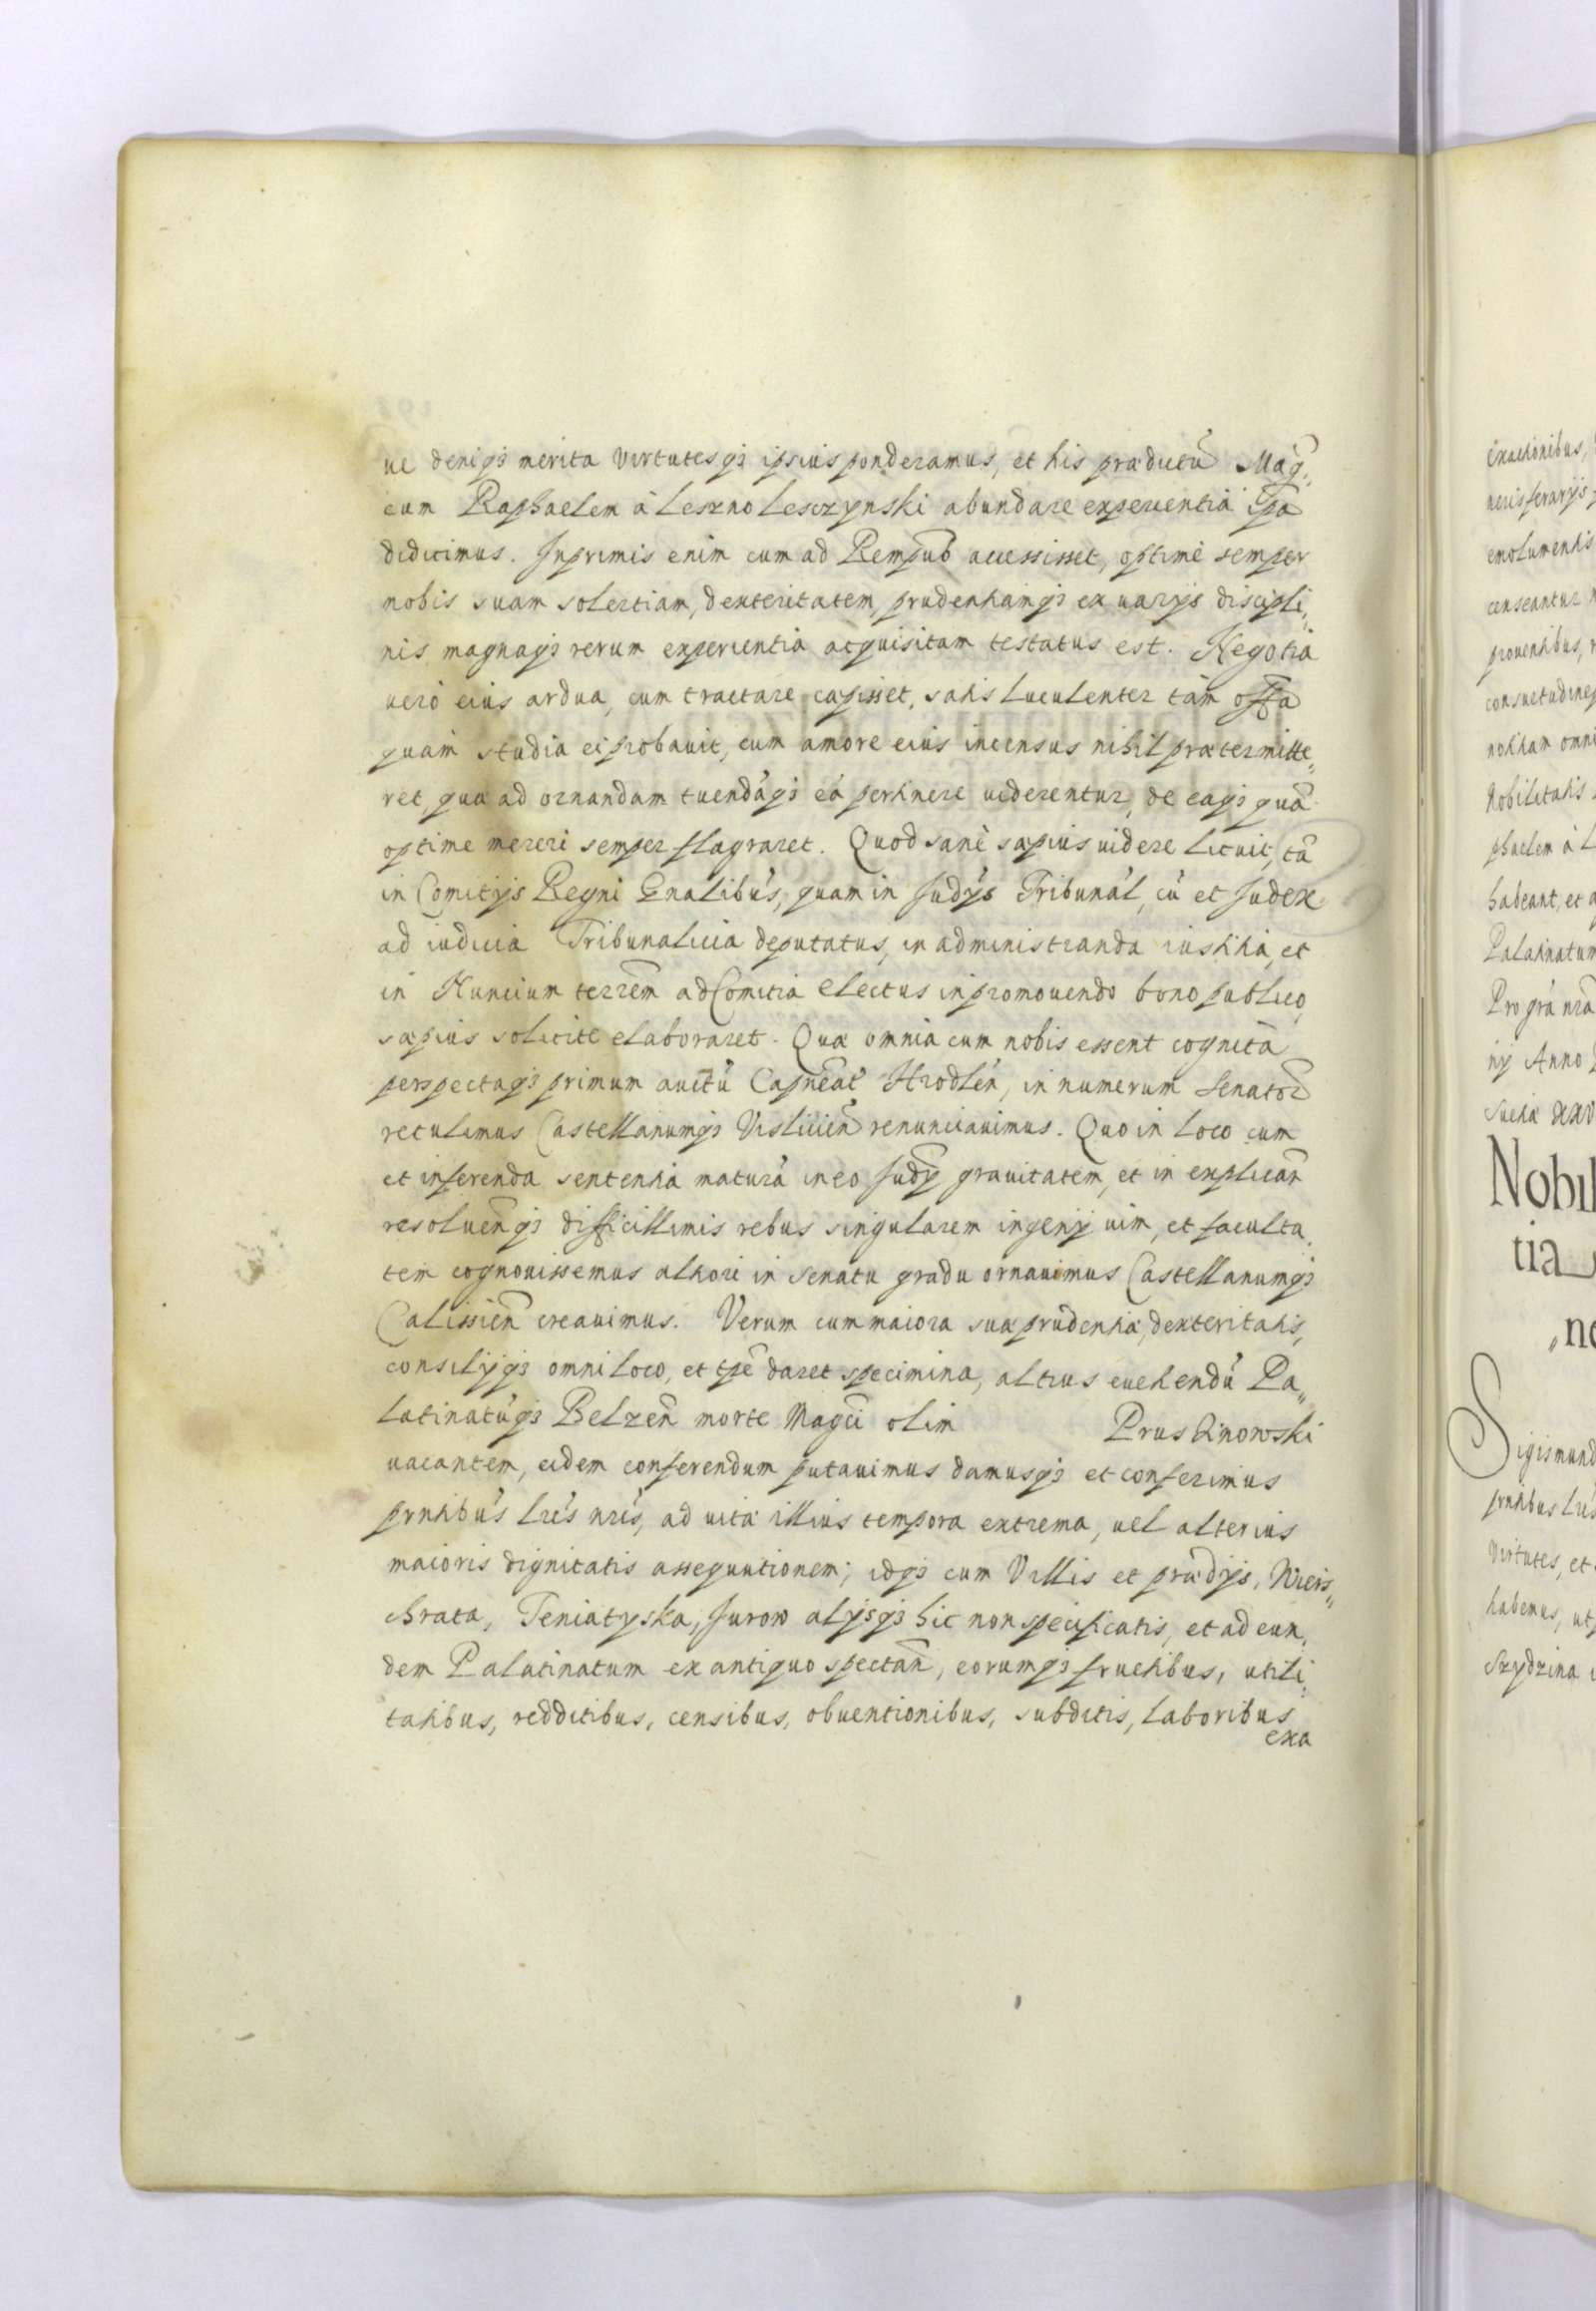 ue deniqз merita virtutesqз ipsius ponderamus, et his prædictũ Mag„
cum Raphaelem à Leszno Lesczynski abundare experientià ipã
didicimus. Inprimis enim cum ad Rempub̃ accessisset, optimè semper
nobis suam solertiam, dexteritatem, prudentiamqз ex uarijs discipli„
nis magnaqз rerum experientia acquisitam testatus est. Negotia
uerò eius ardua, cum tractare cæpisset, satis luculenter tàm offa
quàm studia ei probauit, cum amore eius incensus nihil prætermitte„
ret, quæ ad ornandam tuendáqз eá pertinere uiderentur, de eaqз quã
optime mereri semper flagraret. Quod sanè sæpius uidere licuit, tã
in Comitijs Regni Gnalibús, quam in Judÿs Tribunál, cú et Judex
ad iudicia Tribunalicia deputatus, in administranda iustitia, et
in Nuncium terrem̃ ad Comitia electus in promouendo bono publico
sæpius solicite elaboraret. Quæ omnia cum nobis essent cognita
perspectaqз primum auctũ Capneat̃ Hrodlén, in numerum Senator̃
retulimus Castellanumqз Vislicien̄ renunciauimus. Quo in loco cum
et in ferenda sententia maturã in eo Judÿ grauitatem, et in explican̄
resoluen̄qз difficillimis rebus singularem ingenij uim, et faculta„
tem cognouissemus altiori in Senatu gradu ornauimus Castellanumqз
Calissien̄ creauimus. Verum cum maiora suæ prudentiæ, dexteritatis,
consilijqз omni loco, et tpẽ daret specimina, altius euehendũ Pa„
latinatúqз Belzen̄ morte Magci olim PrusZinowski
uacantem, eidem conferendum putauimus damusqз et conferimus
prntibús lrís nrís, ad uitæ illius tempora extrema, uel alterius
maioris dignitatis assequutionem; idqз cum Villis et prædijs, Wiers„
chrata, Teniatyska, Jurow alijsqз hic non specificatis, et ad eun„
dem Palatinatum ex antiquo spectan̄, eorumqз fructibus, utili„
tatibus, redditibus, censibus, obuentionibus, subditis, laboribus
exa
exactionibus,
emolumentis
censeantur
prouentibus,
notitiam omni
Nobilitatis
phaelem à L
habeant, et a
Palatinatum
Pro grã nrã
nij Anno
Nobil
tia
Sigismund
Virtutes, et
habemus, ut